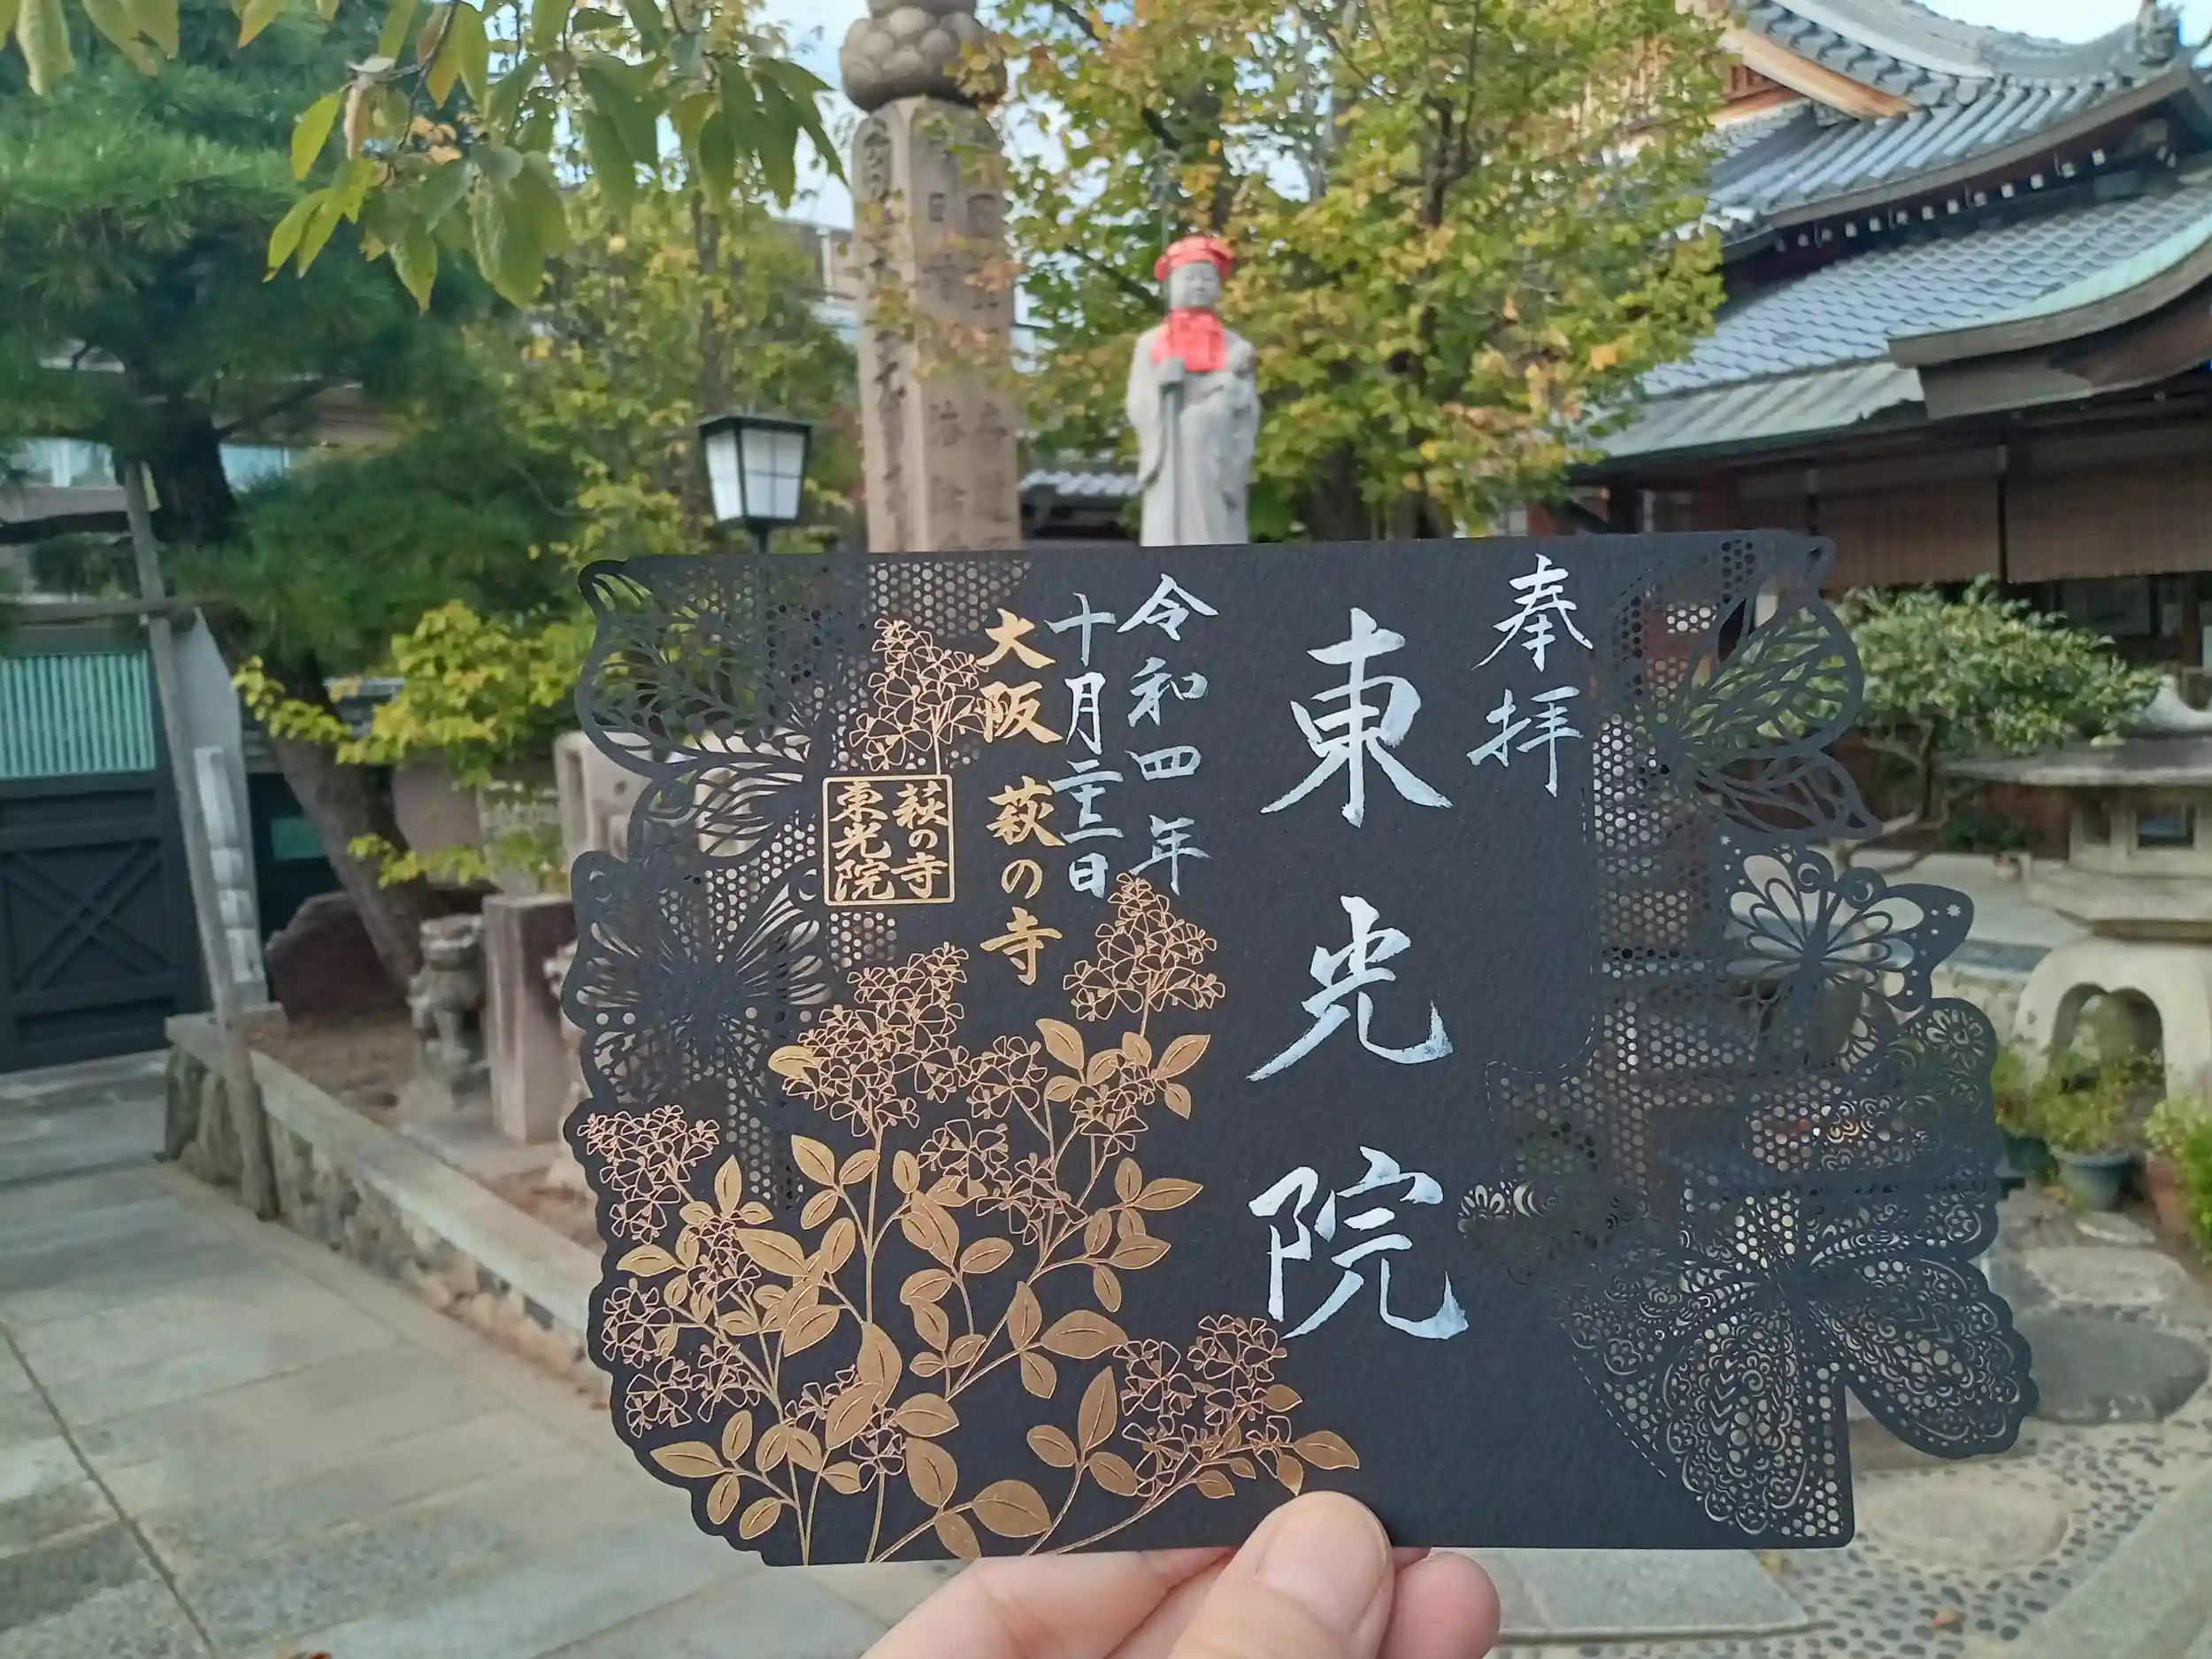 奉拝
東光院
令和四年
十月二十三日
大阪 萩の寺
萩の寺
東光院